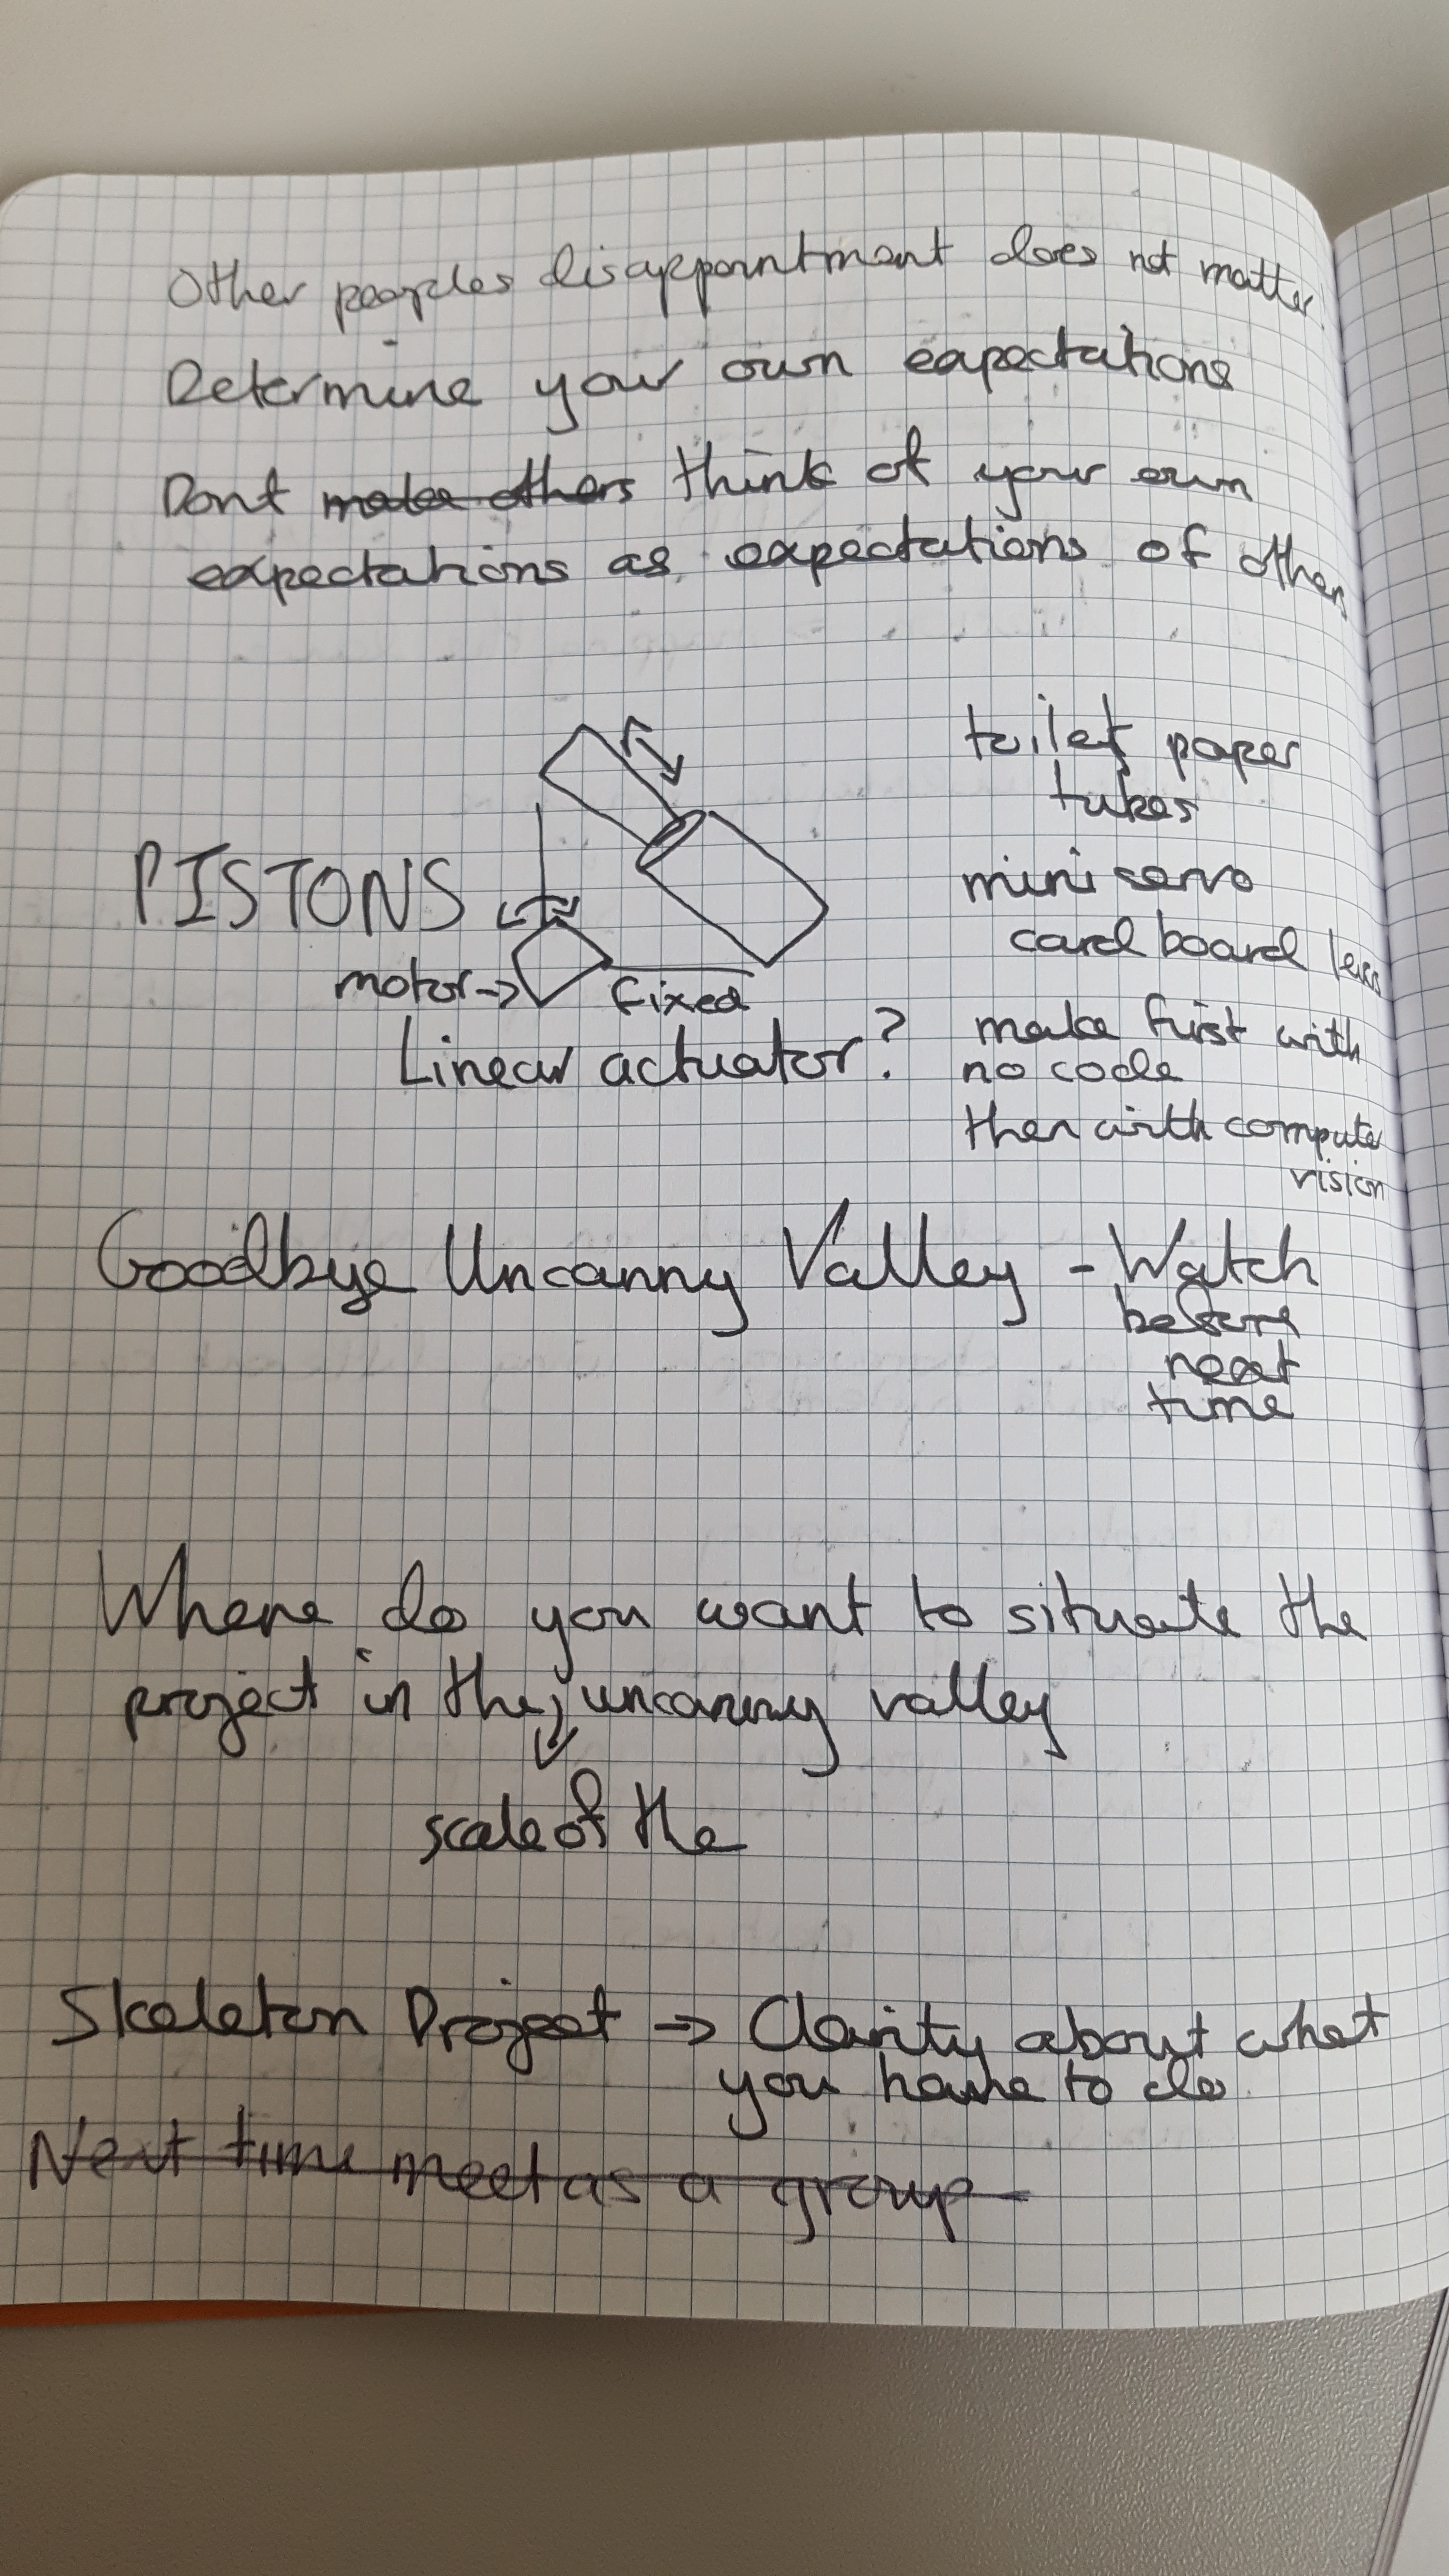 Other peoples disappointment does not matter.
Determine your own expectations
Dont make others think of your own
expectations as expectations of others
toilet paper
tubes
PISTONS
mini servo
card board legs
motor->
fixed
Linear actuator?
make first with
no code
then with computer
vision
Goodbye Uncanny Valley - Watch
before
next
time
Where do you want to situate the
project in the, uncanny valley
scale of the
Skeleton Project -> Clarity about what
you have to do
Next time meet as a group